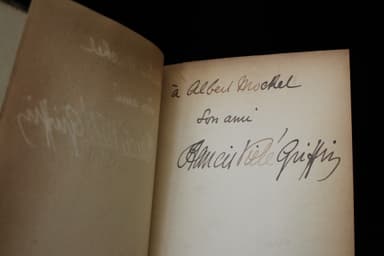 à Albert Mockel
Son ami
Francis Vielé Griffin